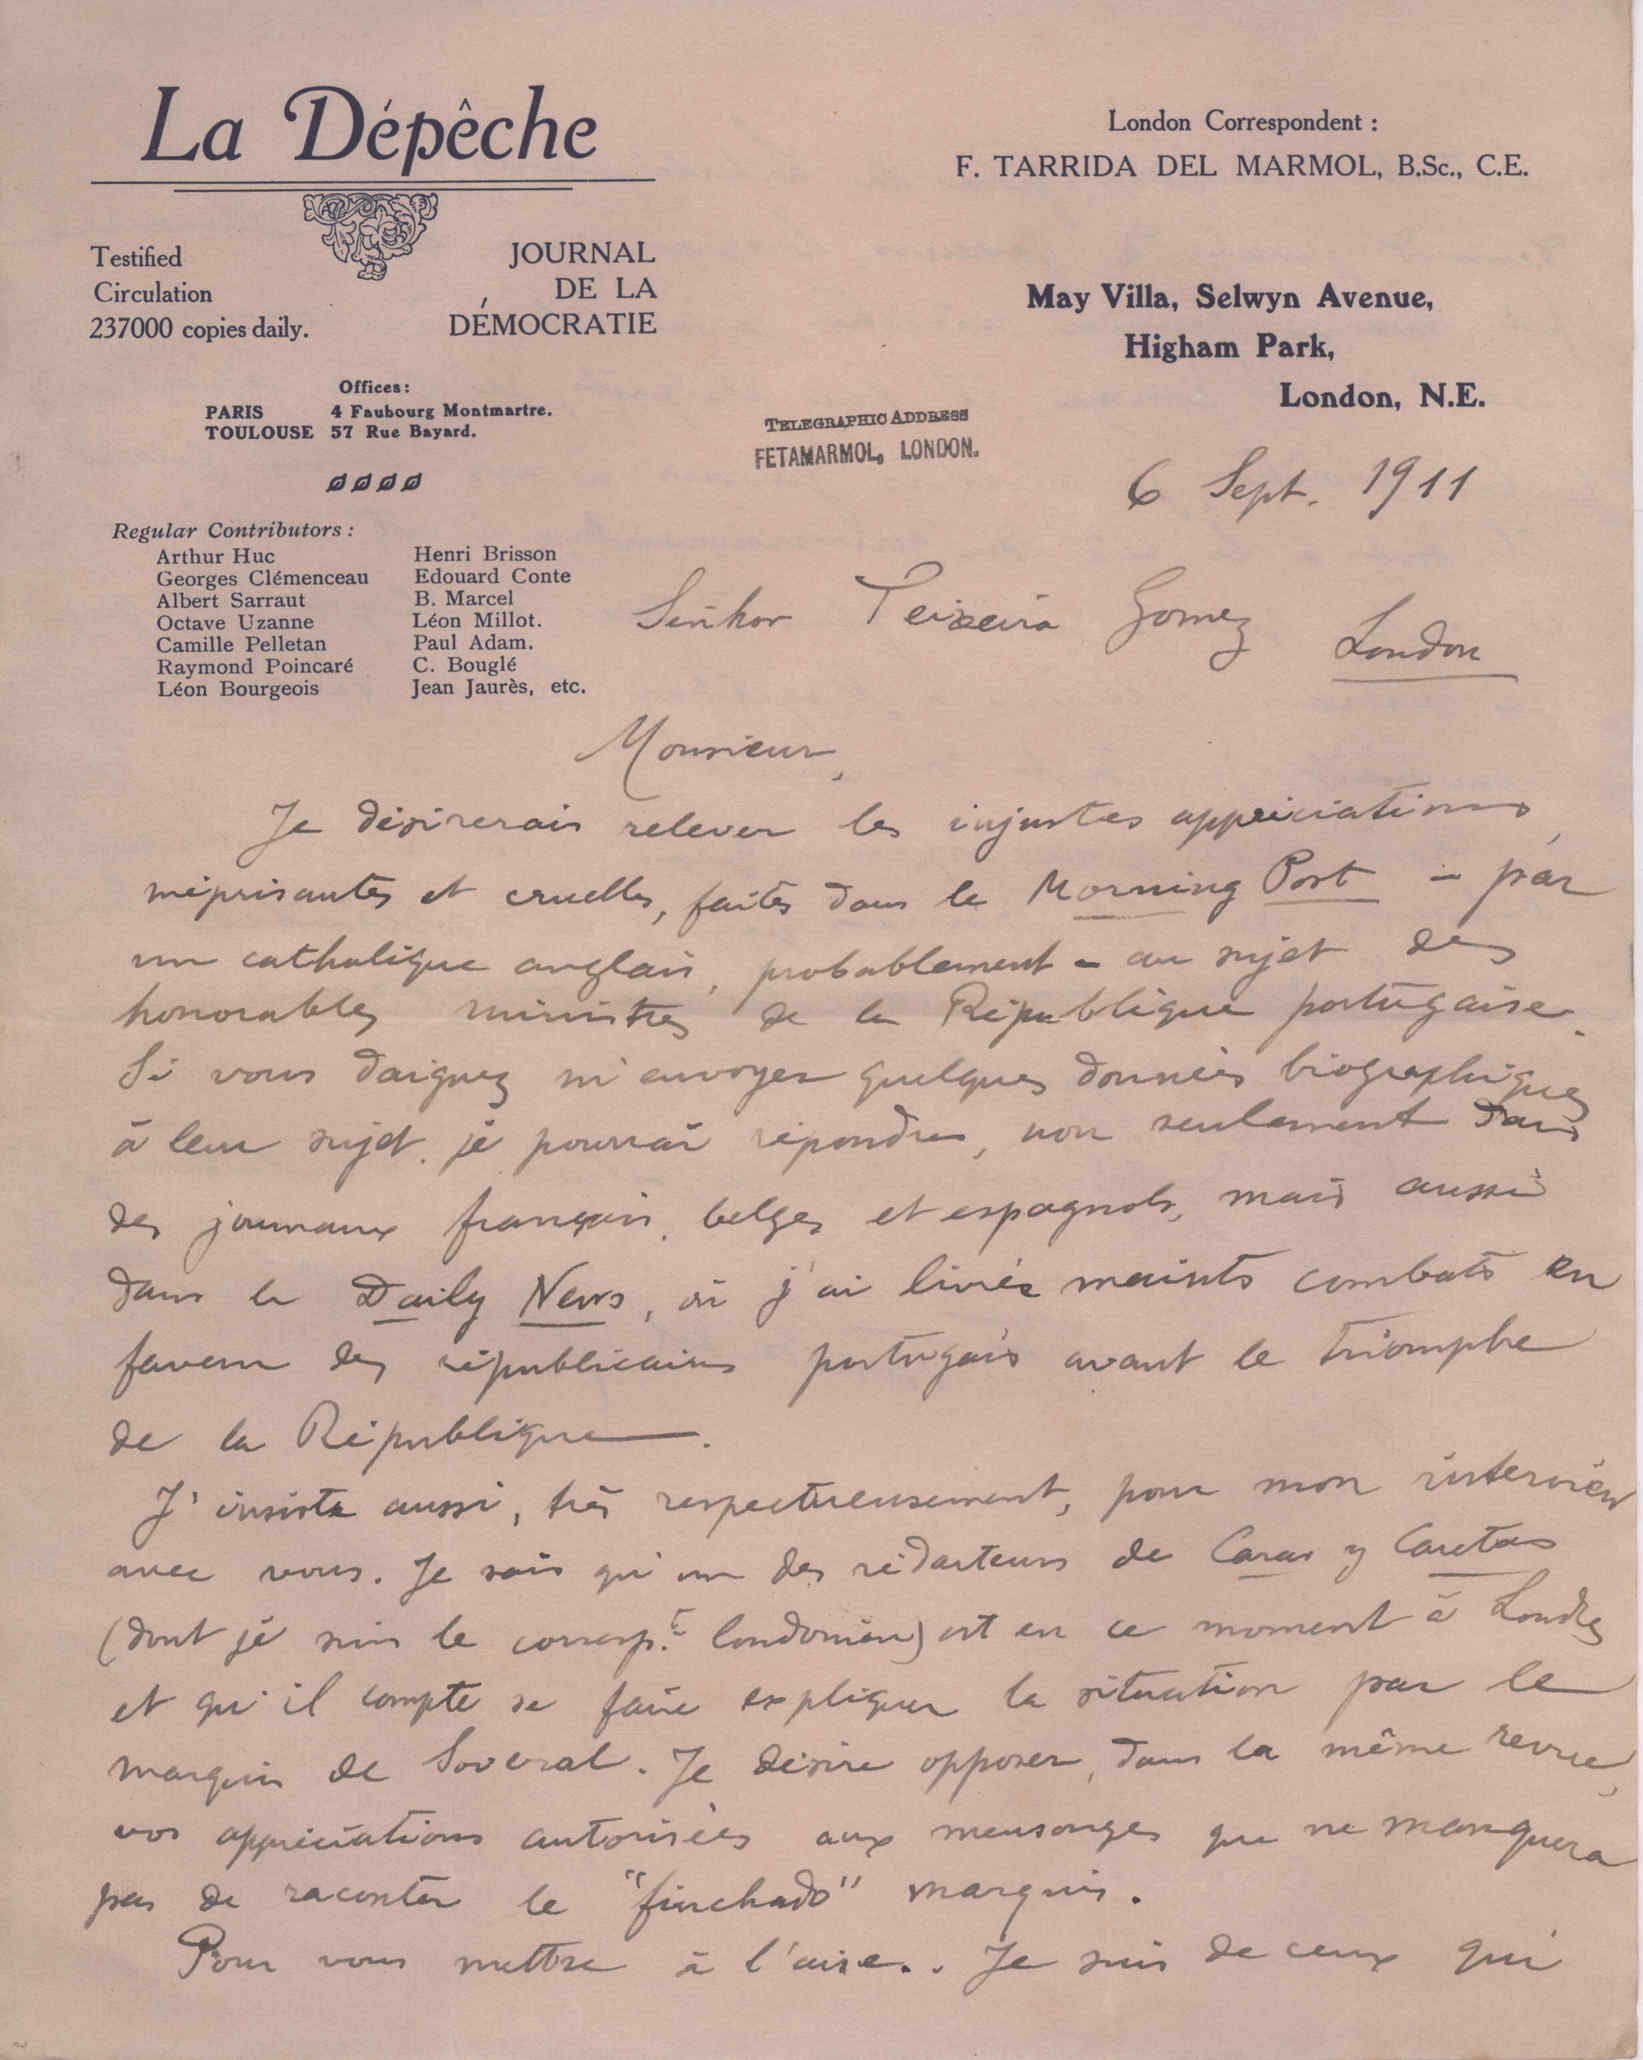 La Dépêche
Testified
Circulation
237000 copies daily.
JOURNAL
DE LA
DÉMOCRATIE
Offices:
PARIS 4 Faubourg Montmartre.
TOULOUSE 57 Rue Bayard.
Regular Contributors:
Arthur Huc
Georges Clémenceau
Albert Sarraut
Octave Uzanne
Camille Pelletan
Raymond Poincaré
Léon Bourgeois
Henri Brisson
Edouard Conte
B. Marcel
Léon Millot.
Paul Adam.
C. Bouglé
Jean Jaurès, etc.
London Correspondent:
F. TARRIDA DEL MARMOL, B.Sc., C.E.
May Villa, Selwyn Avenue,
Higham Park,
London, N.E.
TELEGRAPHIC ADDRESS
FETAMARMOL, LONDON.
6 Sept. 1911
Senhor Teixeira Gomez
London
Monsieur,
Je désirerais relever les injustes appréciations,
méprisantes et cruelles, faites dans le Morning Post - par
un catholique anglais, probablement - au sujet des
honorables ministres de la République portugaise.
Si vous daignez m'envoyer quelques données biographiques
à leur sujet, je pourrai répondre, non seulement dans
des journaux français, belges et espagnols, mais aussi
dans le Daily News, où j'ai livrés maints combats en
faveur des républicains portugais avant le triomphe
de la République.
J'insiste aussi, très respectueusement, pour mon interview
avec vous. Je sais qu'un des rédacteurs de Caras y Caretas
(dont je suis le corresp.t londonien) est en ce moment à Londres
et qu'il compte se faire expliquer la situation par le
marquis de Soveral. Je désire opposer, dans la même revue,
vos appréciations autorisées aux mensonges que ne manquera
pas de raconter le "finchado" marquis.
Pour vous mettre à l'aise.. Je suis de ceux qui